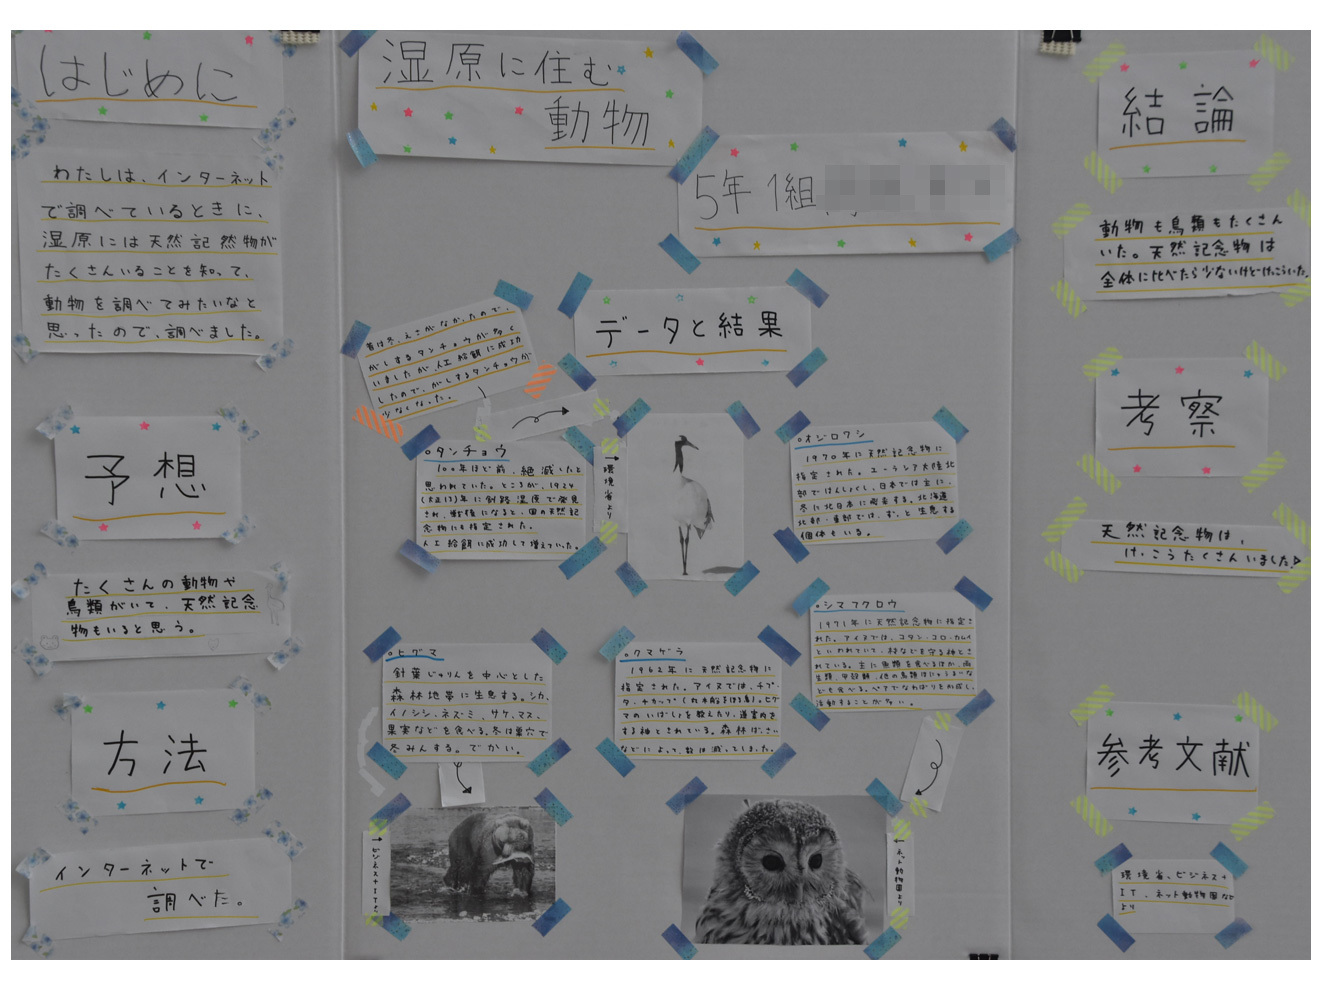 はじめに
わたしは、インターネット
で調べているときに、
湿原には天然記然物が
たくさんいることを知って、
動物を調べてみたいなと
思ったので、調べました。
予想
たくさんの動物や
鳥類がいて、天然記念
物もいると思う。
方法
インターネットで
調べた。
湿原に住む
動物
5年1組
データと結果
昔は冬、えさがなかったので、
がしするタンチョウが多く
いましたが、人工給餌に成功
したので、がしするタンチョウが
少なくなった。
タンチョウ
100年ほど前、絶滅したと
思われていた。ところが、1924
(大正13)年に釧路湿原で発見
され、戦後になると、国の天然記
念物にも指定された。
人工給餌に成功して増えていった。
環境省より
オジロワシ
1970年に天然記念物に
指定された。ユーラシア大陸北
部ではんしょくし、日本では主に、
冬に北日本に飛来する。北海道
北部・東部では、ずっと生息する
個体もいる。
ヒグマ
針葉じゅりんを中心とした
森林地帯に生息する。シカ、
イノシシ、ネズミ、サケ、マス、
果実などを食べる。冬は巣穴で
冬みんする。でかい。
ビジネス+ITより
クマゲラ
1962年に天然記念物に
指定された。アイヌでは、チプ・
タ・チカップ(丸木船をほる鳥)。ヒグ
マのいばしょを教えたり、道案内を
する神とされている。森林ばっさい
などによって、数は減ってしまった。
シマフクロウ
1971年に天然記念物に指定さ
れた。アイヌでは、コタン・コロ・カムイ
といわれていて、村などを守る神とさ
れている。主に魚類を食べるほか、両
生類、甲殻類、他の鳥類ほにゅうるいな
ども食べる。ペアでなわばりを形成し、
活動することが多い。
ネット動物園より
結論
動物も鳥類もたくさん
いた。天然記念物は
全体に比べたら少ないけどけっこういた。
考察
天然記念物は、
けっこうたくさんいました。
参考文献
環境省、ビジネス+
IT、ネット動物園など
より